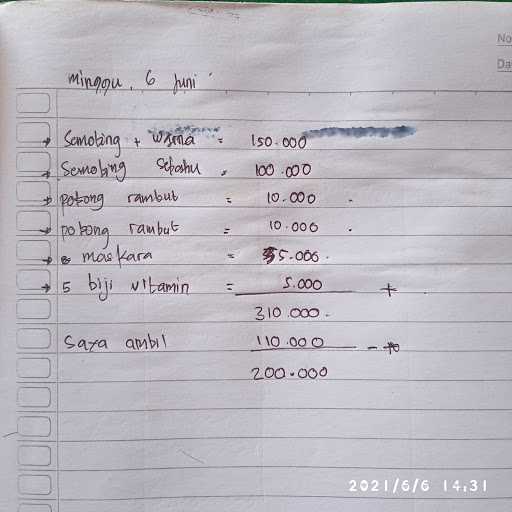 No
Da
minggu, 6 Juni
→ Semobing + warna = 150.000
→ Semobing sebahu = 100.000
→ potong rambut = 10.000
→ potong rambut = 10.000
→ maskara = 35.000
→ 5 biji vitamin = 5.000 +
310.000
Saya ambil 110.000 -
200.000
2021/6/6 14:31